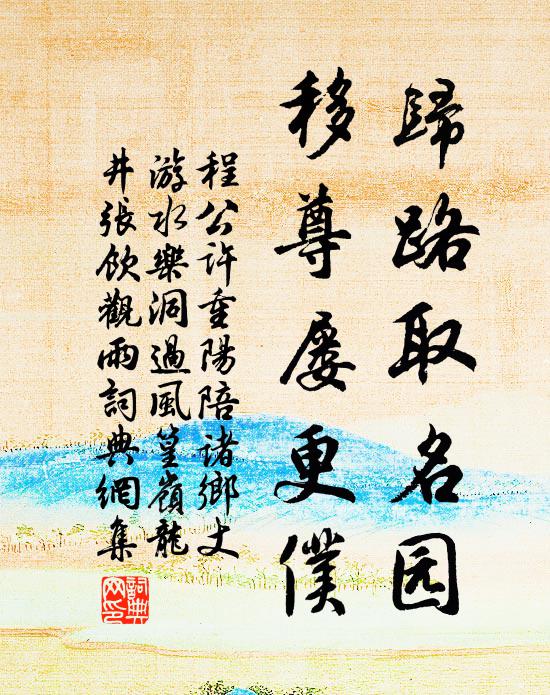 歸路取名园
移尊屡更僕
程公許重陽陪诸鄉丈
游水樂洞過風篁嶺龍
井張飲觀雨詞典網集
詞典